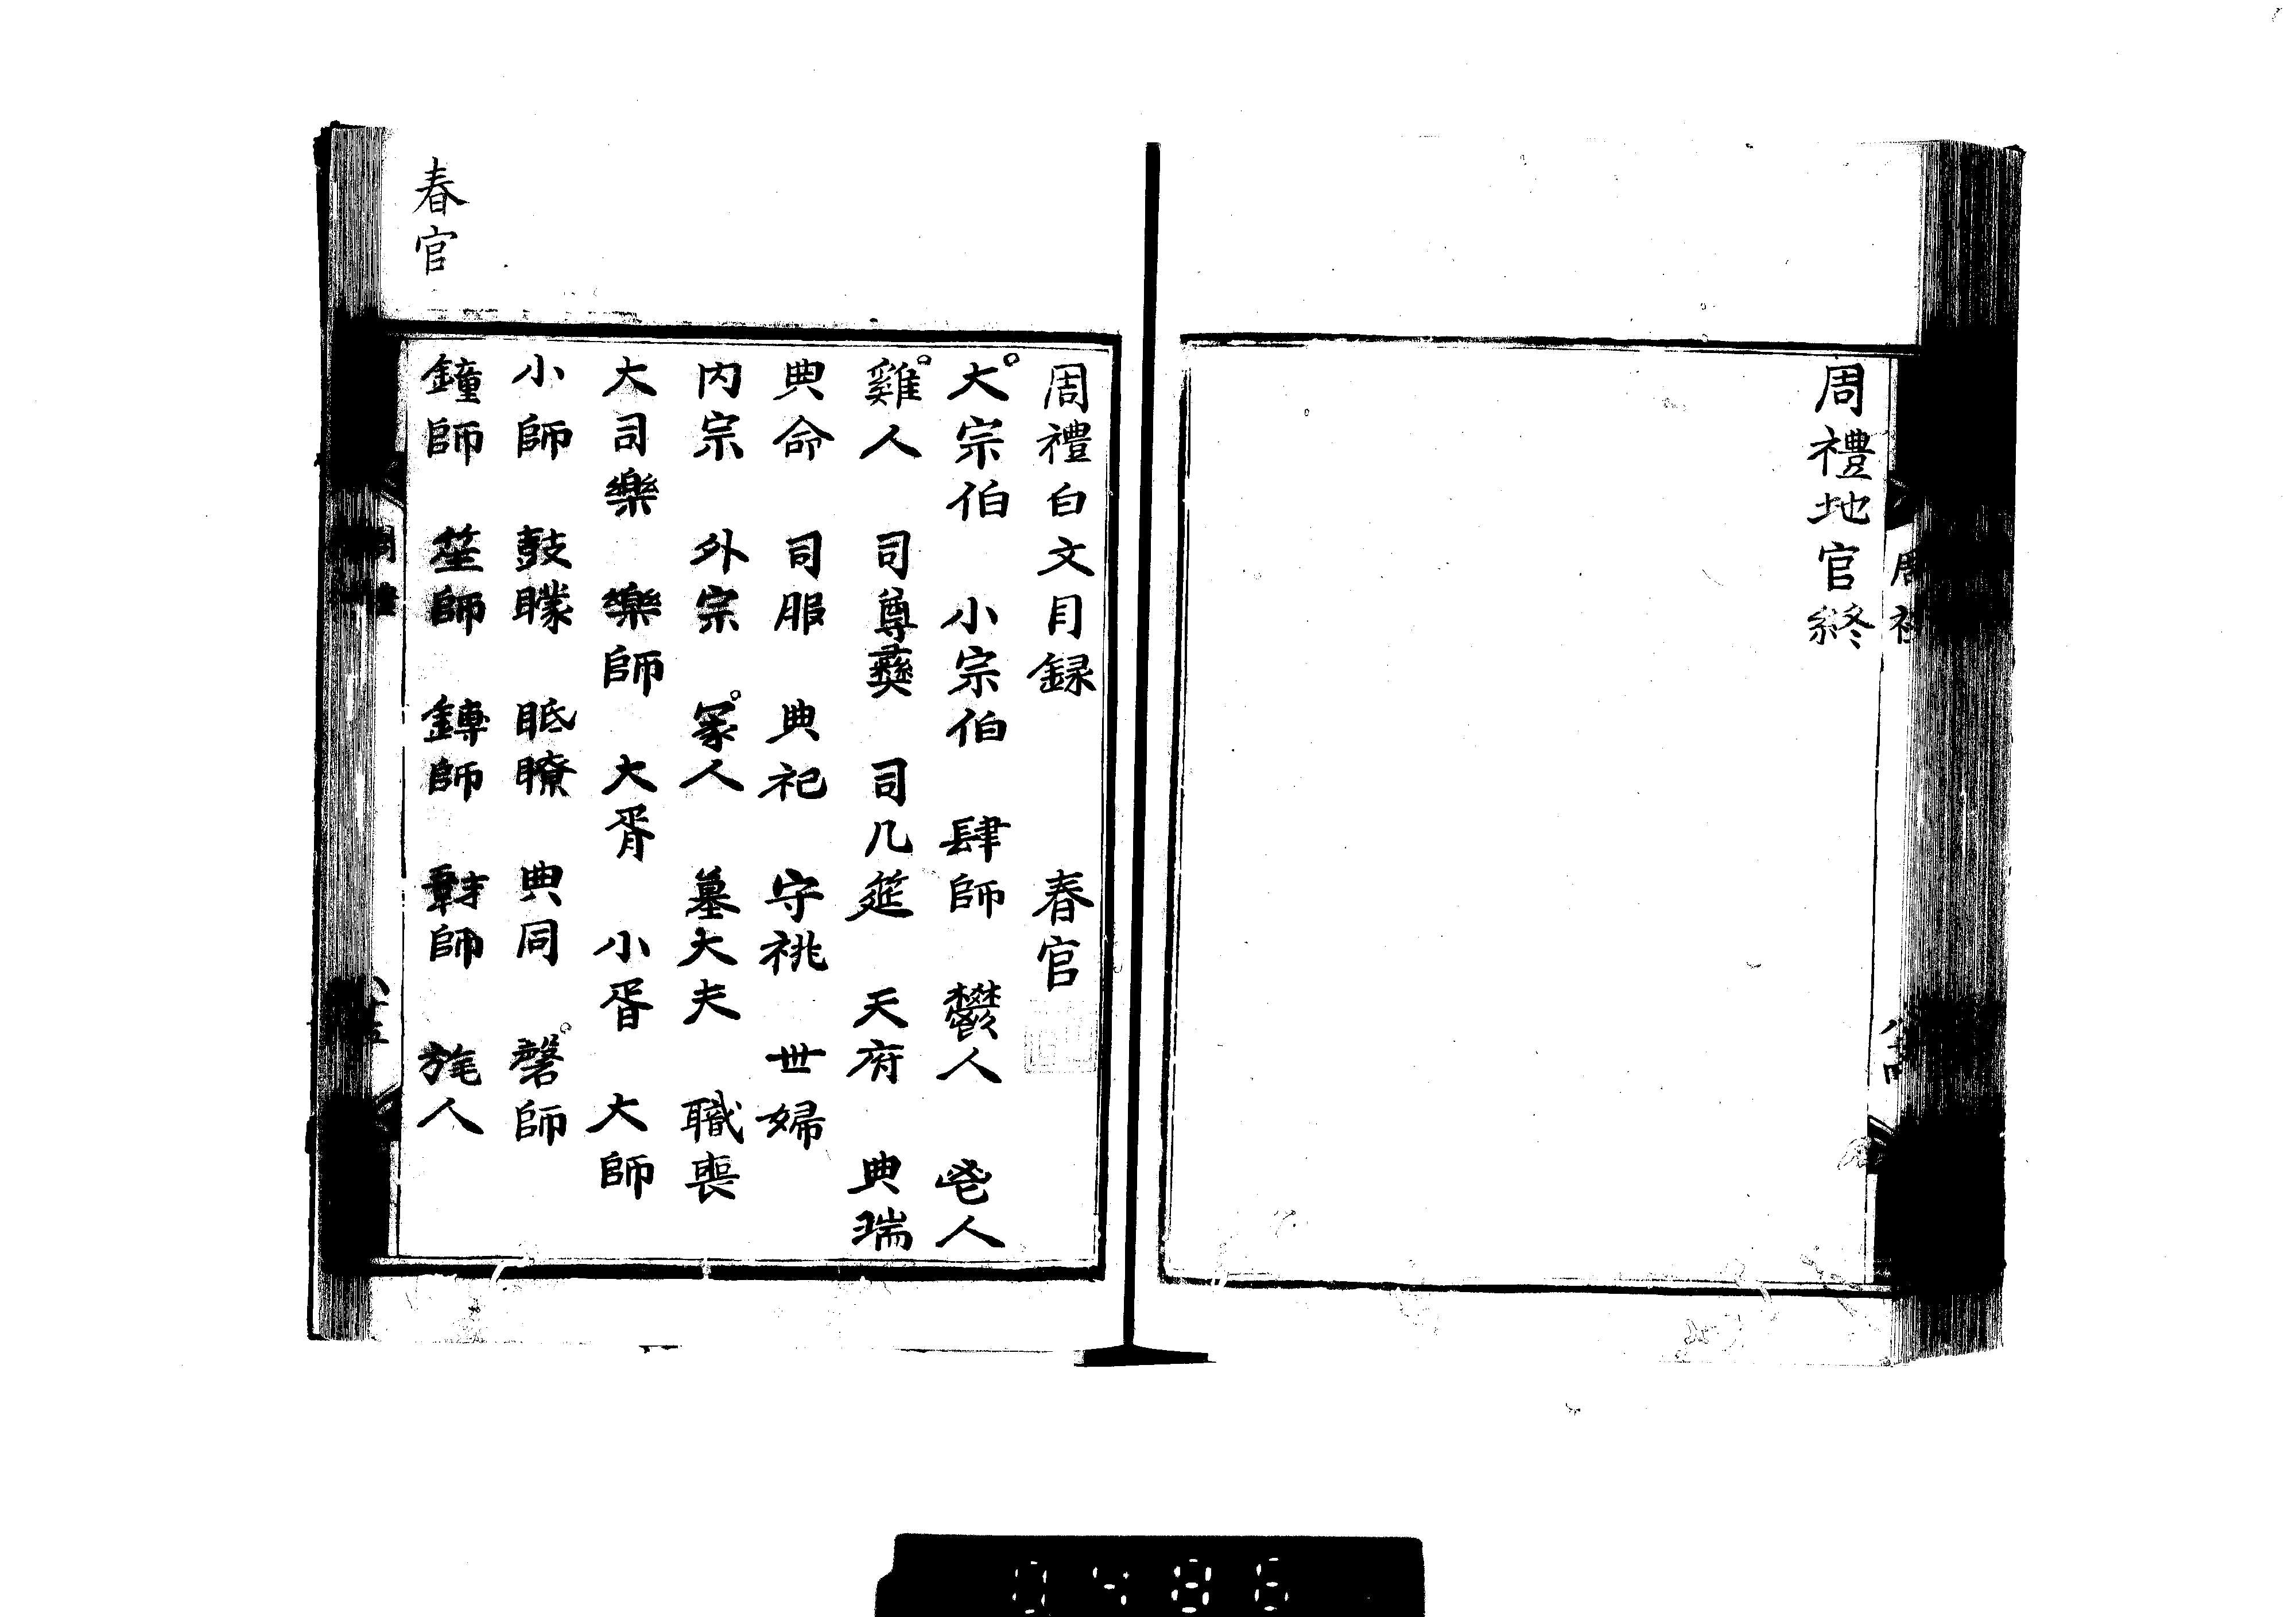 周禮地官終
周禮白文目録　春官
大宗伯　小宗伯　肆師　鬱人　鬯人
雞人　司尊彝　司几筵　天府　典瑞
典命　司服　典祀　守祧　世婦
内宗　外宗　冢人　墓大夫　職喪
大司樂　樂師　大胥　小胥　大師
小師　鼓矇　眡瞭　典同　磬師
鐘師　笙師　鎛師　韎師　旄人
春官